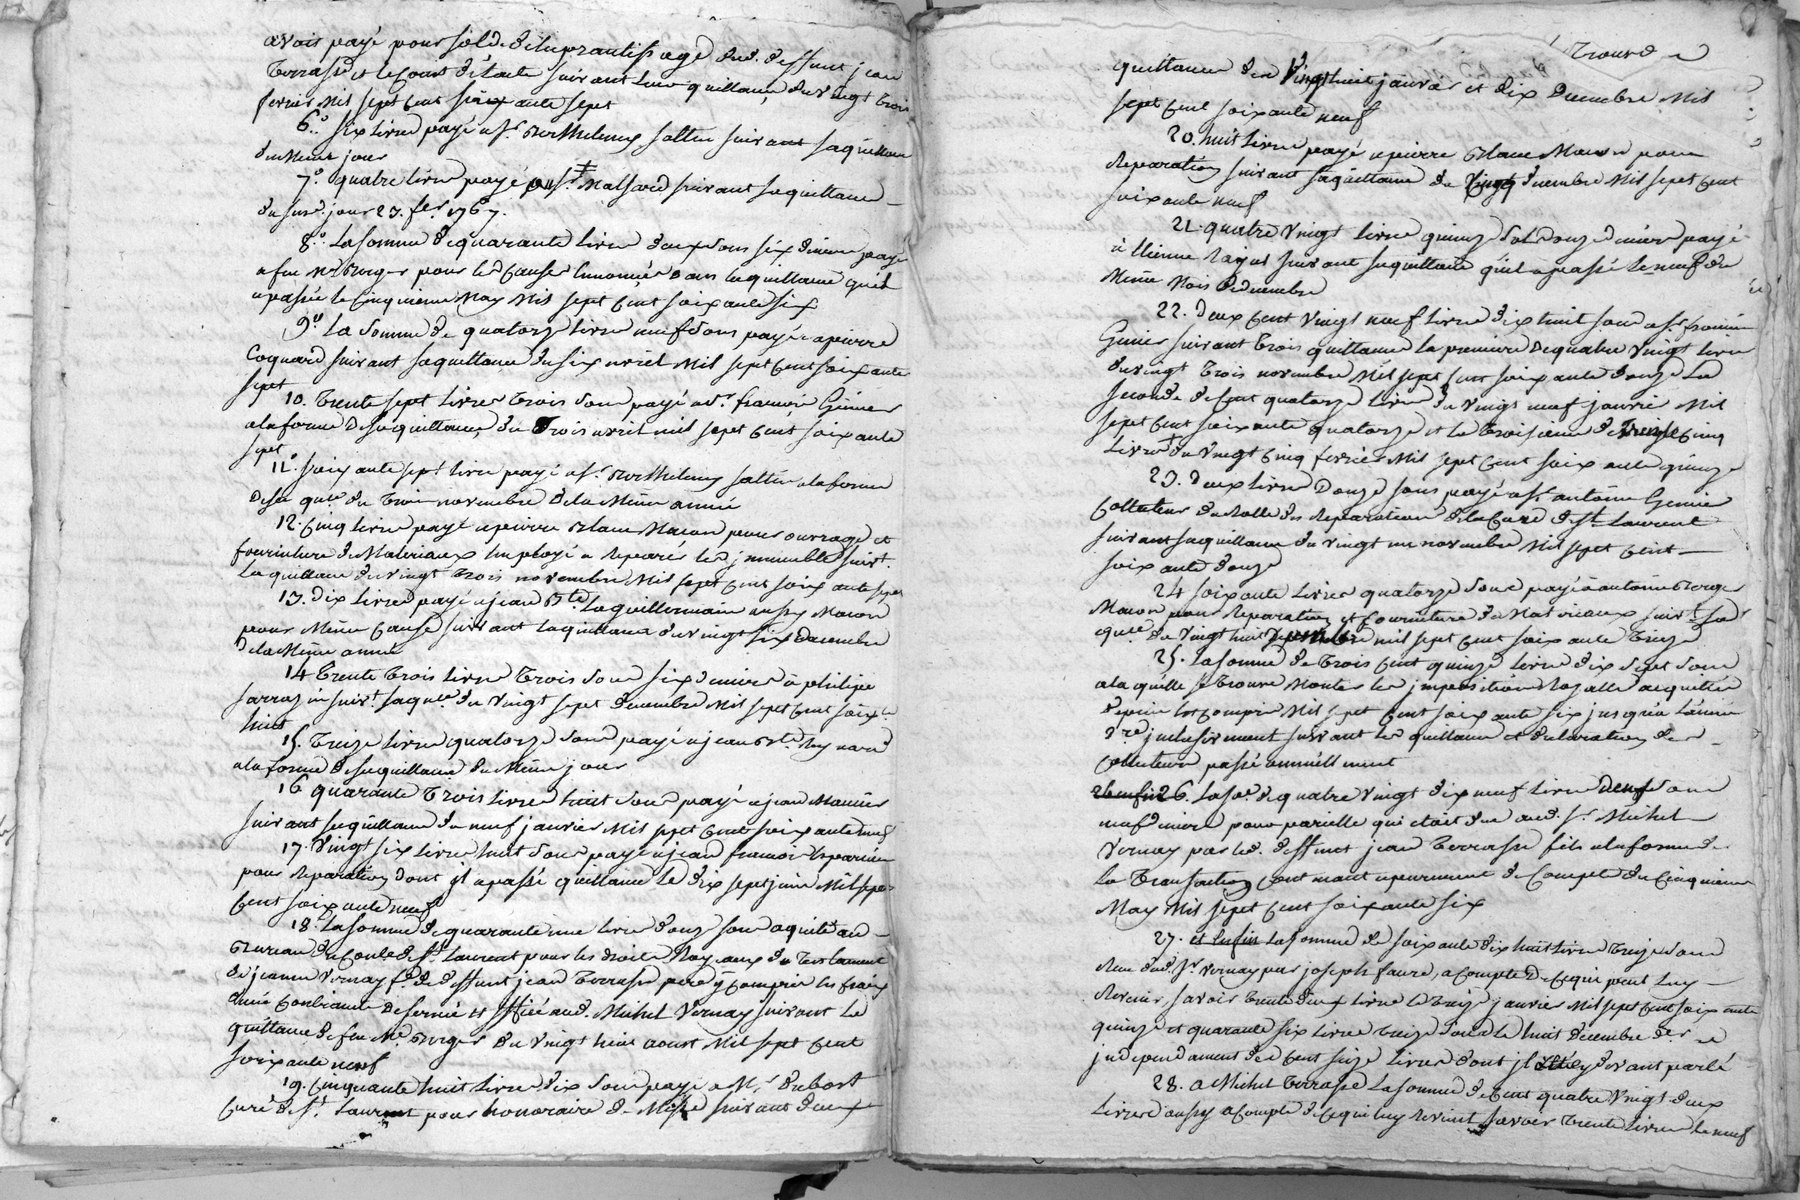 avoir payé pour solde de l'aprantissage dud. deffunt jean
Terrasse et le cout de l'acte suivant leur quittance du vingt trois
fevrier mil sept cent soixante sept
6.° six livres payé a sr. Berthelemy sallin suivant sa quittance
du meme jour
7.° quatre livres payé au sr. suivant sa quittance
du susd. jour 23. fer. 1767.
8.° La somme de quarante livres deux sous six deniers payé
a feu Me Berger pour les causes ennoncées dans la quittance qu'il
a passée le cinquieme may mil sept cent soixante six
9.° La somme de quatorze livres neuf sous payé a pierre
Coquard suivant sa quittance du six avril mil sept cent soixante
sept
10. Trente sept livres trois sous payé a sr. francois Genier
a la forme de sa quittance du Trois avril mil sept cent soixante
sept
11.° soixante sept livres payé a sr. Berthelemy sallin a la forme
de sa qce. du Trois novembre de la meme année
12. Cinq livres payé a pierre Blanc Macon pour ouvrage et
fourniture de Materiaux employé a reparer les jmmeubles suivt.
la quittance du vingt trois novembre mil sept cent soixante sept
13. Dix livres payé a jean Bte. Laguillermain aussy Macon
pour meme cause suivant la quittance du vingt six Decembre
De la Meme année
14 Trente Trois livres Trois sous six deniers à philipe
sarrazin suivt. sa qce. du vingt sept decembre mil sept cent soixte.
huit
15. Treize livres quatorze sous payé a jean Bte. Rey
a la forme de sa quittance du Meme jour
16 quarante Trois livres huit sous payé a jean Monier
suivant sa quittance du neuf janvier mil sept cent soixante neuf
17. Vingt six livres huit sous payé a jean francois
pour reparations dont jl a passé quittance le dix sept juin mil sept
cent soixante neuf
18. La somme de quarante une livres douze sous aquité au
Bureau du Controle de st. Laurent pour les droits Royaux du Testament
de jeanne Vernay fe. de deffunt jean Terrasse pere y compris les frais
d'une contrainte decernée et aud. Michel Vernay suivant la
quittance de feu Me. Berger du vingt huit aoust mil sept cent
soixante neuf
19. Cinquante huit livres dix sous payé a Mr. Dubost
Curé de st. Laurent pour honoraire de Messe suivant deux
Trouve
quittances des Vingt huit janvier et dix Decembre Mil
sept cent soixante neuf
20. huit livres payé a pierre Blanc Macon pour
Reparations suivant sa quittance du Vingt decembre mil sept cent
soixante neuf
21. quatre vingt livres quinze sols onze deniers payé
à Etienne suivant sa quittance qu'il a passé le neuf du
Meme Mois Decembre
22. Deux cent vingt neuf livres dix huit sous a sr. francois
Genier suivant Trois quittances la premiere de quatre vingt livres
du vingt Trois novembre mil sept cent soixante douze La
seconde de cent quatorze livres du vingt neuf janvier Mil
sept cent soixante quatorze et la Troisieme de cinq
Livres du vingt cinq fevrier mil sept cent soixante quinze
23. Deux livres Douze sous payé a sr. antoine Genier
Collecteur du Rolle des Reparations de la Cure de st. Laurent
suivant sa quittance du vingt un novembre mil sept cent
soixante douze
24 soixante livres quatorze sous payé à antoine Berger
Macon pour Reparations et fourniture de Materiaux suivt. sa
qce. du vingt huit mil sept cent soixante Treize
25. La somme de Trois cent quinze livres dix sept sous
a laquelle se trouve monter les jmpositions Royalle acquittés
depuis et compris mil sept cent soixante six jusqu'a l'année
dre. jnclusivement suivant les quittances et declarations des
Collecteurs passé annuellement
26 enfin 26. La soe. de quatre vingt dix neuf livres deux sous
neuf deniers pour parcelle qui etait due aud. sr. Michel
Vernay par led. deffunt jean Terrasse fils a la forme de
la Transaction contenant apurement de compte du cinquieme
May mil sept cent soixante six
27. et enfin La somme de soixante dix huit livres treize sous
due dud. sr. Vernay par joseph faure, a compte de ce qui peut luy
Revenir, savoir Trente deux livres le Treize janvier mil sept cent soixante
quinze et quarante six livres treize sous le huit decembre der.
jndependament des cent seize livres dont jl cy devant parlé
28. a Michel Terrasse La somme de cent quatre vingt deux
Livres aussy a compte de ce qui luy revient savoir Trente livres le neuf